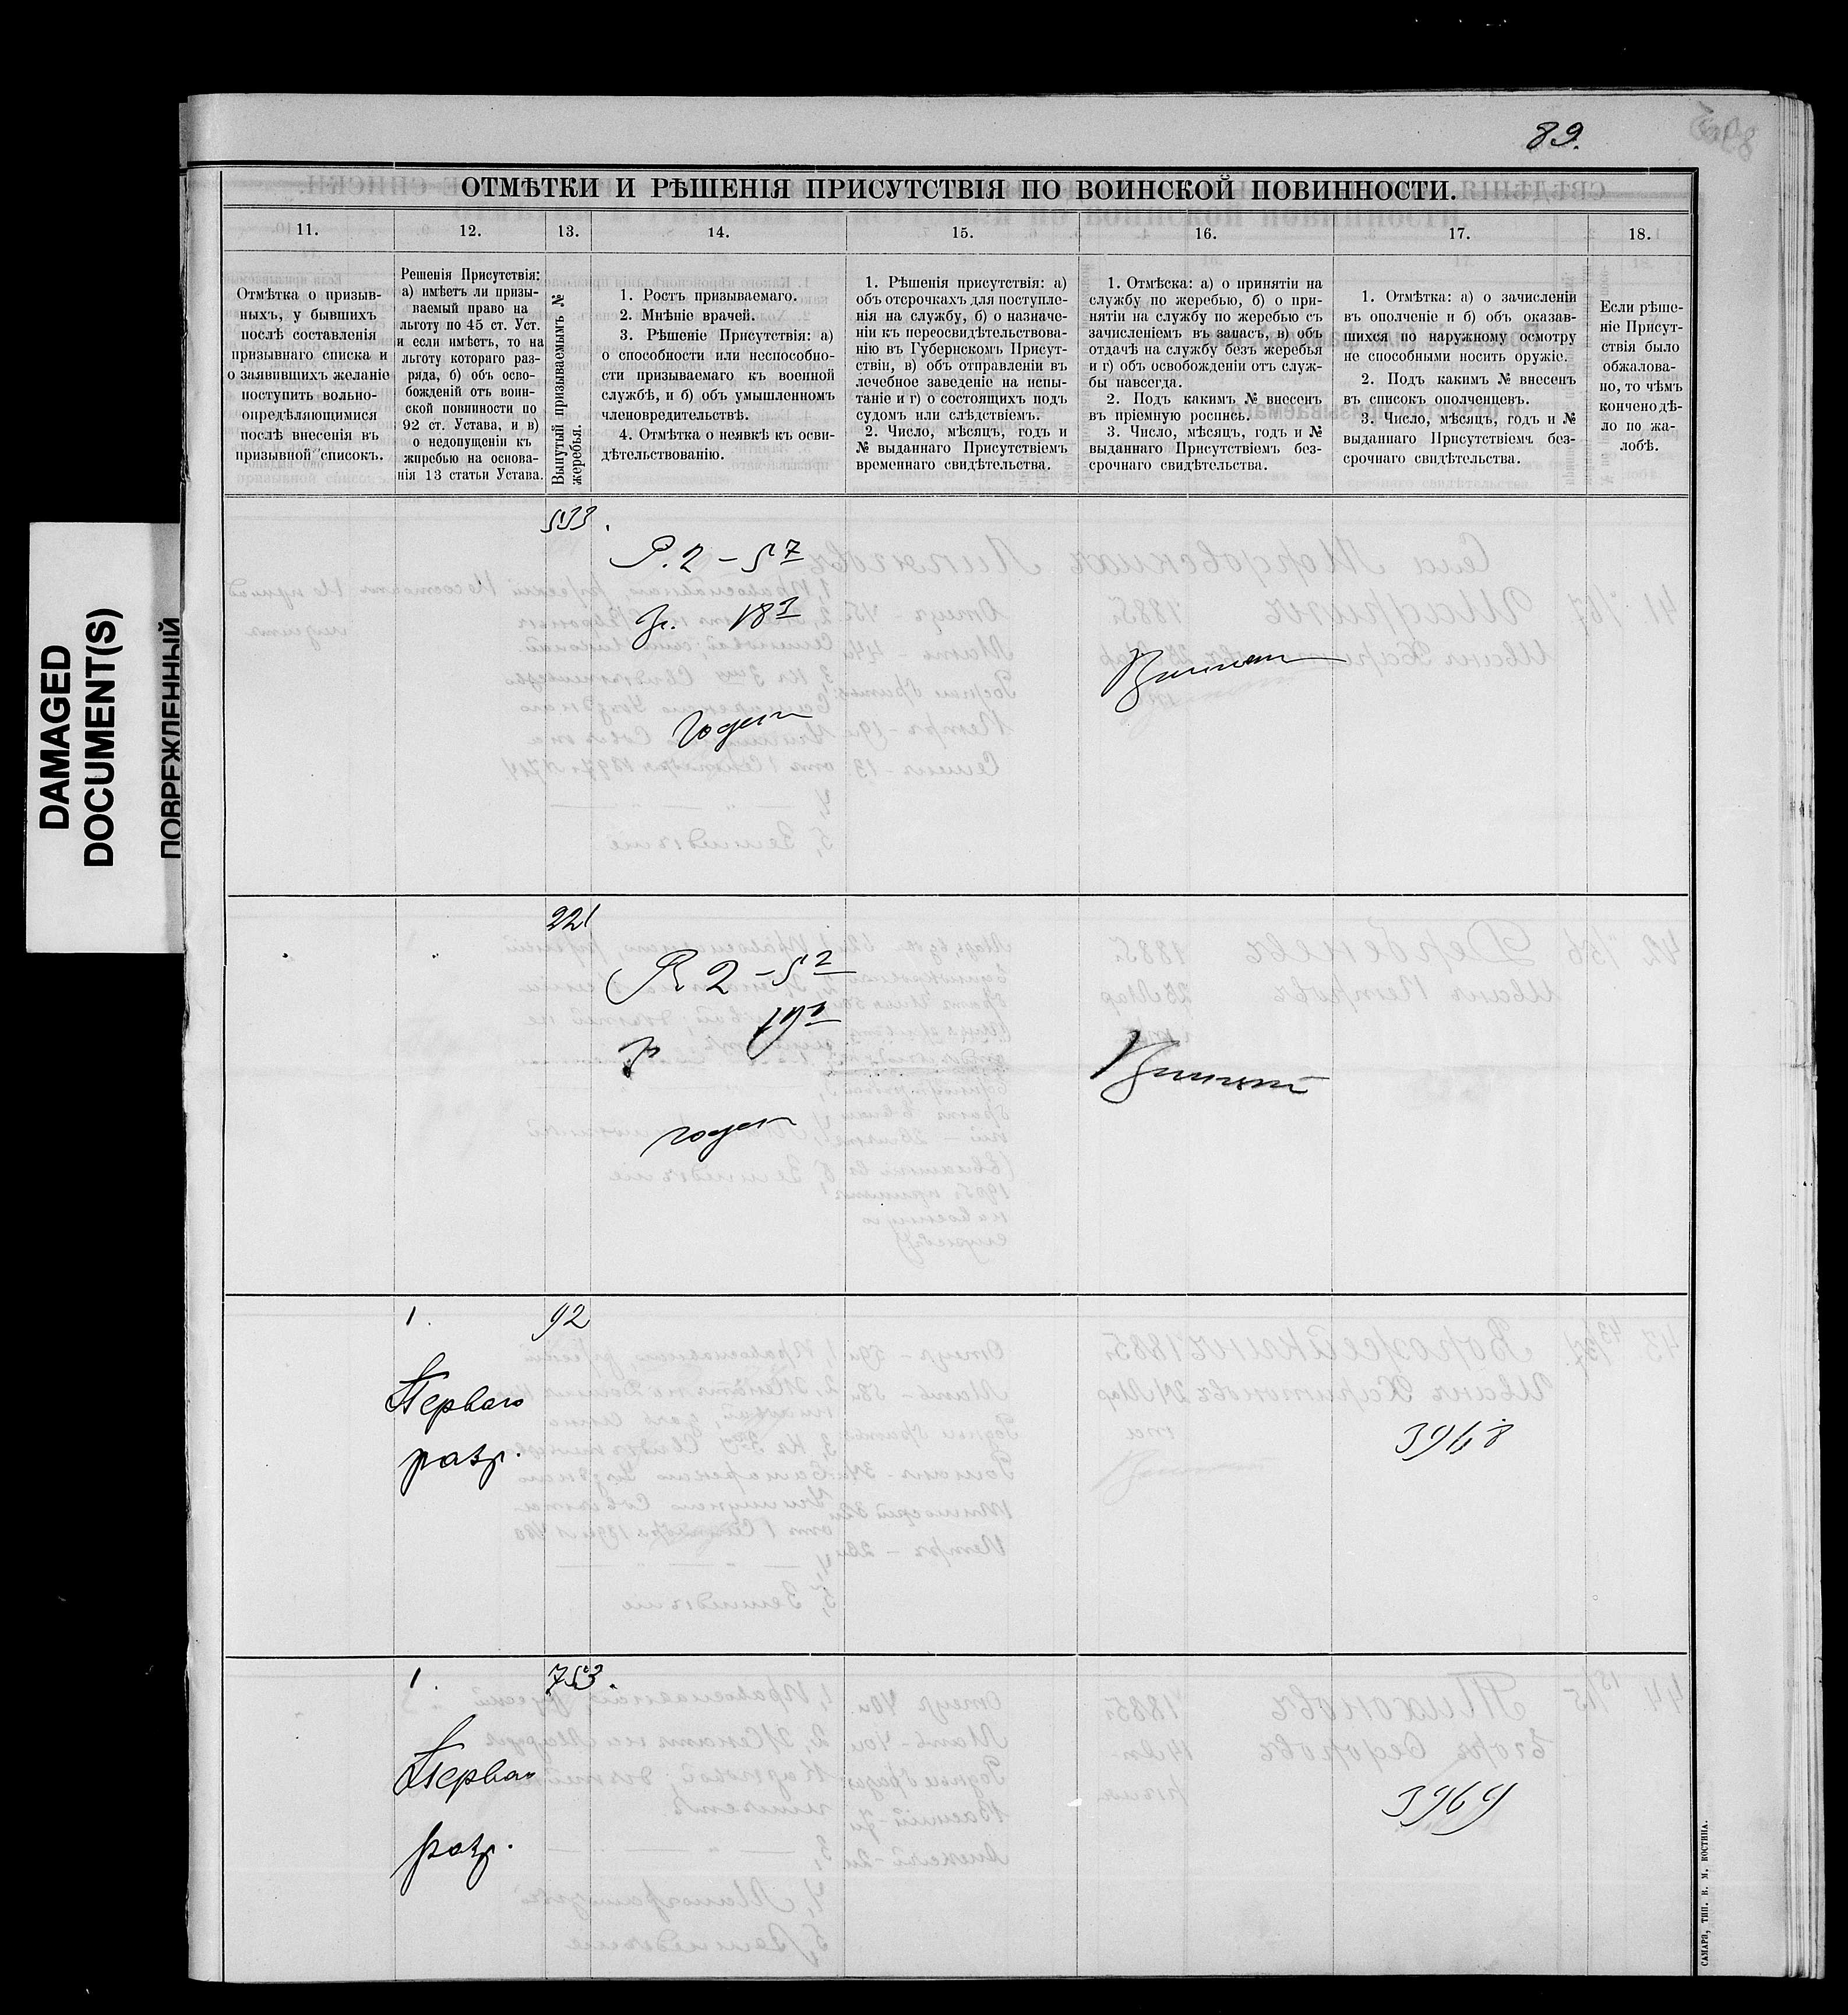 89.
DAMAGED
DOCUMENT(S)
ПОВРЕЖДЕННЫЙ
ОТМѢТКИ И РѢШЕНІЯ ПРИСУТСТВІЯ ПО ВОИНСКОЙ ПОВИННОСТИ.
11.
12.
13.
14.
15.
16.
17.
18.
Отмѣтка о призыв-
ныхъ, у бывшихъ
послѣ составленія
призывнаго списка и
о заявившихъ желаніе
поступить вольно-
опредѣляющимися
послѣ внесенія въ
призывной списокъ.
Решенія Присутствія:
а) имѣетъ ли призы-
ваемый право на
льготу по 45 ст. Уст.
и если имѣетъ, то на
льготу котораго раз-
ряда, б) объ осво-
божденій отъ воин-
ской повинности по
92 ст. Устава, и в)
о недопущеніи къ
жиребью на основа-
нія 13 статьи Устава.
Вынутый призываемымъ №
жеребья.
1. Ростъ призываемаго.
2. Мнѣніе врачей.
3. Рѣшеніе Присутствія: а)
о способности или неспособно-
сти призываемаго къ военной
службѣ, и б) объ умышленномъ
членовредительствѣ.
4. Отмѣтка о неявкѣ къ осви-
дѣтельствованію.
1. Рѣшенія присутствія: а)
объ отсрочкахъ для поступле-
нія на службу, б) о назначе-
ніи къ переосвидѣтельствова-
нію въ Губернскомъ Присут-
ствіи, в) объ отправленіи въ
лечебное заведеніе на испы-
таніе и г) о состоящихъ подъ
судомъ или слѣдствіемъ.
2. Число, мѣсяцъ, годъ и
№ выданнаго Присутствіемъ
временнаго свидѣтельства.
1. Отмѣска: а) о принятіи на
службу по жеребью, б) о при-
нятіи на службу по жеребью съ
зачисленіемъ въ запасъ, в) объ
отдачѣ на службу безъ жеребья
и г) объ освобожденіи отъ служ-
бы навсегда.
2. Подъ какимъ № внесенъ
въ пріемную роспись.
3. Число, мѣсяцъ, годъ и №
выданнаго Присутствіемъ без-
срочнаго свидѣтельства.
1. Отмѣтка: а) о зачисленіи
въ ополченіе и б) объ оказав-
шихся по наружному осмотру
не способными носить оружіе.
2. Подъ какимъ № внесенъ
въ списокъ ополченцевъ.
3. Число, мѣсяцъ, годъ и №
выданнаго Присутствіемъ без-
срочнаго свидѣтельства.
Если рѣше-
ніе Присут-
ствія было
обжалова-
но, то чѣмъ
кончено дѣ-
ло по жа-
лобѣ.
533.
Р. 2 – 5 7
Гр. 18 3
Годенъ
Принятъ
221
Р. 2 – 5 2
19 3
Гр
годенъ
Принятъ
1.
92
Перваго
разр.
3968
1.
753.
Перваго
разр.
3969
САМАРА, ТИП. В. М. КОСТИНА.